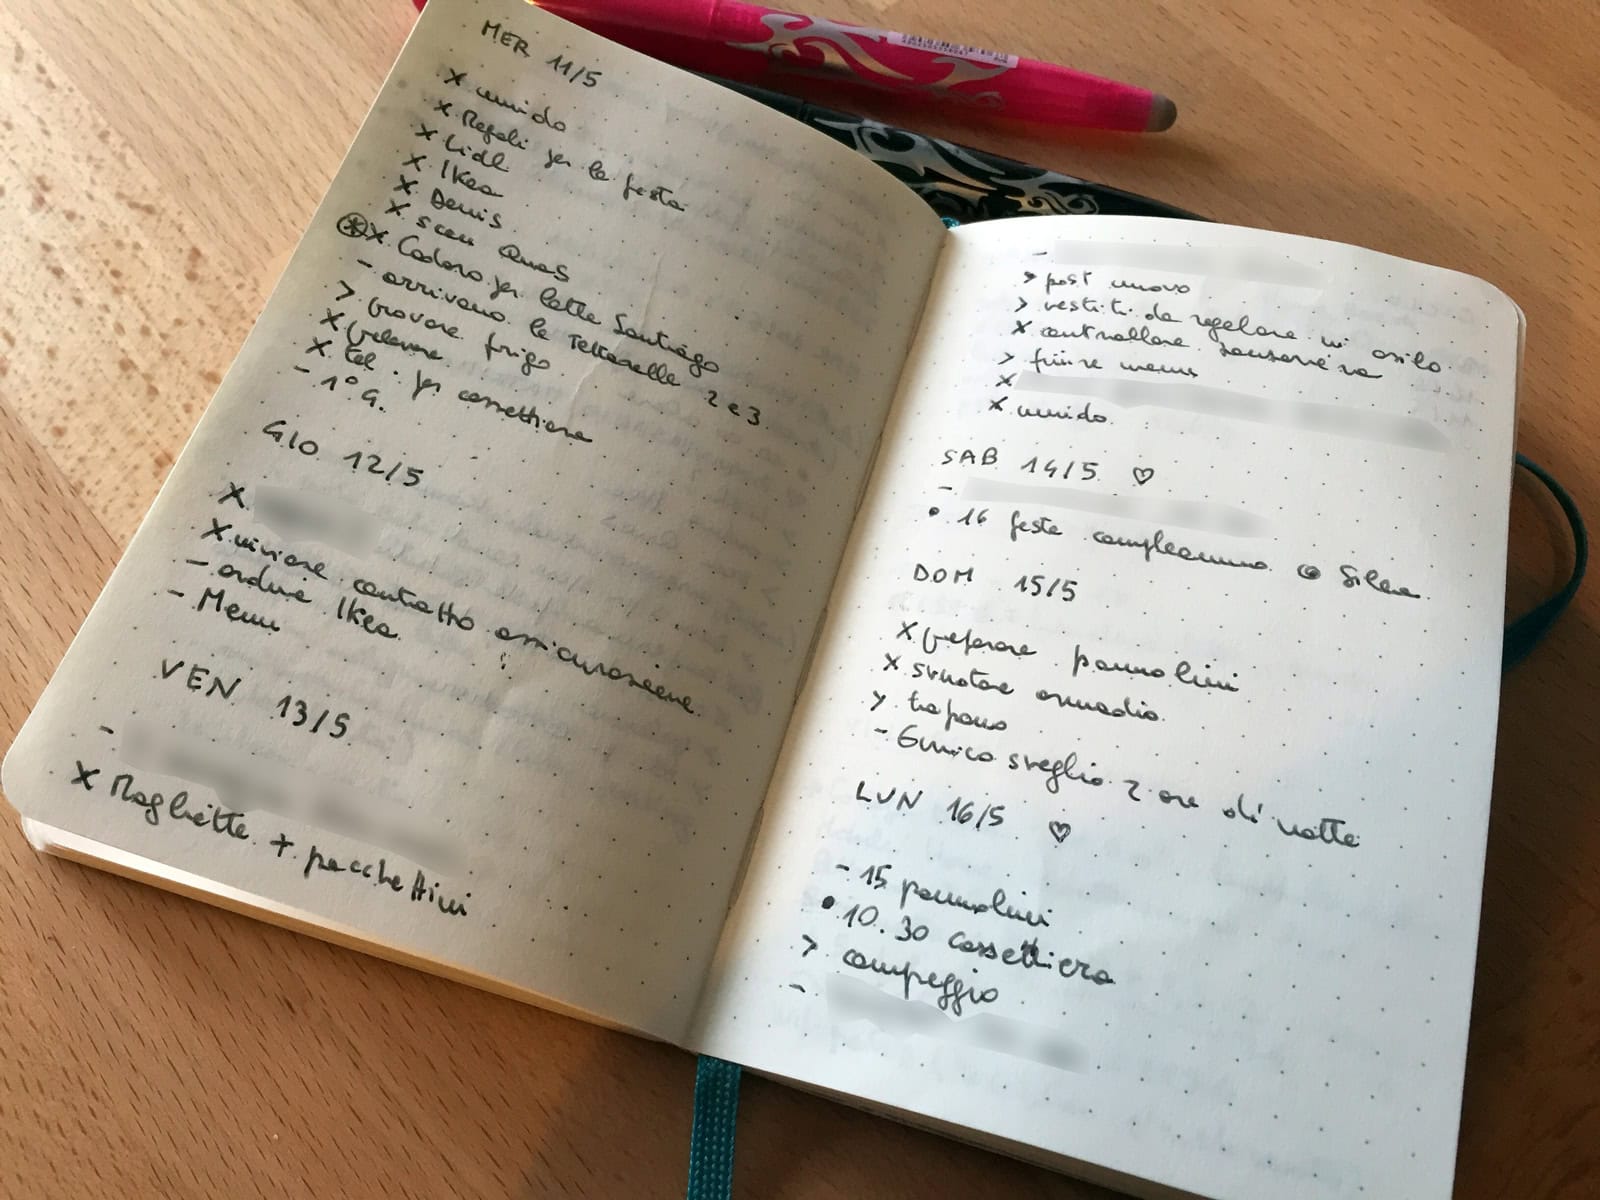 MER 11/5
x umido
x Regali per la festa
x Lidl
x Ikea
x Denis
x scan
x Cadoro per latte Santiago
- arrivano le Tettarelle 2 e 3
> provare frigo
x prelevare
x tel. per cassettiera
- 1° G.
GIO 12/5
x
x inviare contratto assicurazione
- ordine Ikea
- Menu
VEN 13/5
-
x Magliette + pacchettini
-
> post nuovo
> vestiti da regalare in asilo
x controllare
> finire menu
x
x umido
SAB 14/5 ♡
-
• 16 festa compleanno @ Silea
DOM 15/5
x preparare pannolini
x svuotare armadio
> trapano
- Enrico sveglio 2 ore di notte
LUN 16/5 ♡
- 15 pannolini
• 10.30 cassettiera
> campeggio
-